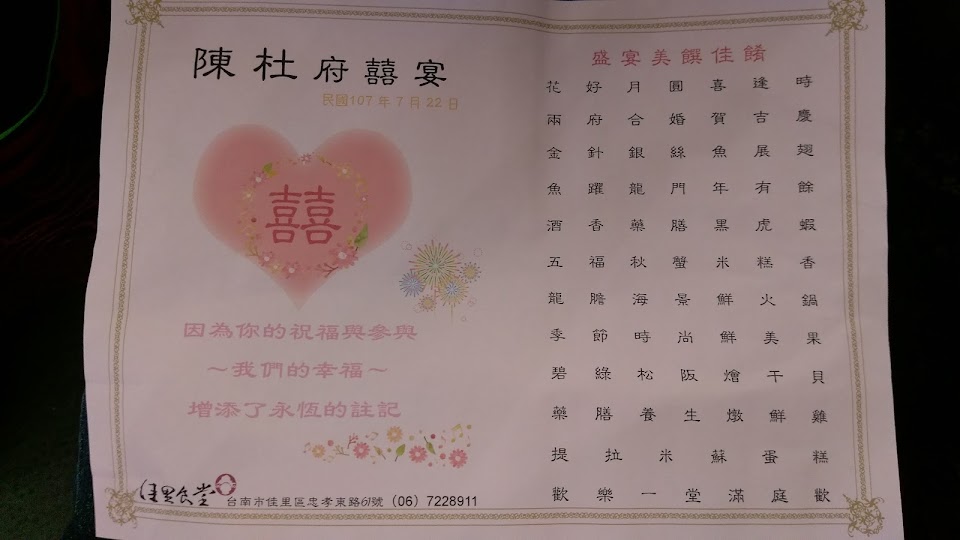 陳杜府囍宴
民國107年7月22日
囍
因為你的祝福與參與
～我們的幸福～
增添了永恆的註記
佳里食堂
台南市佳里區忠孝東路61號 (06) 7228911
盛宴美饌佳餚
花好月圓喜逢時
兩府合婚賀吉慶
金針銀絲魚展翅
魚躍龍門年有餘
酒香藥膳黑虎蝦
五福秋蟹米糕香
龍膽海景鮮火鍋
季節時尚鮮美果
碧綠松阪燴干貝
藥膳養生燉鮮雞
提拉米蘇蛋糕
歡樂一堂滿庭歡